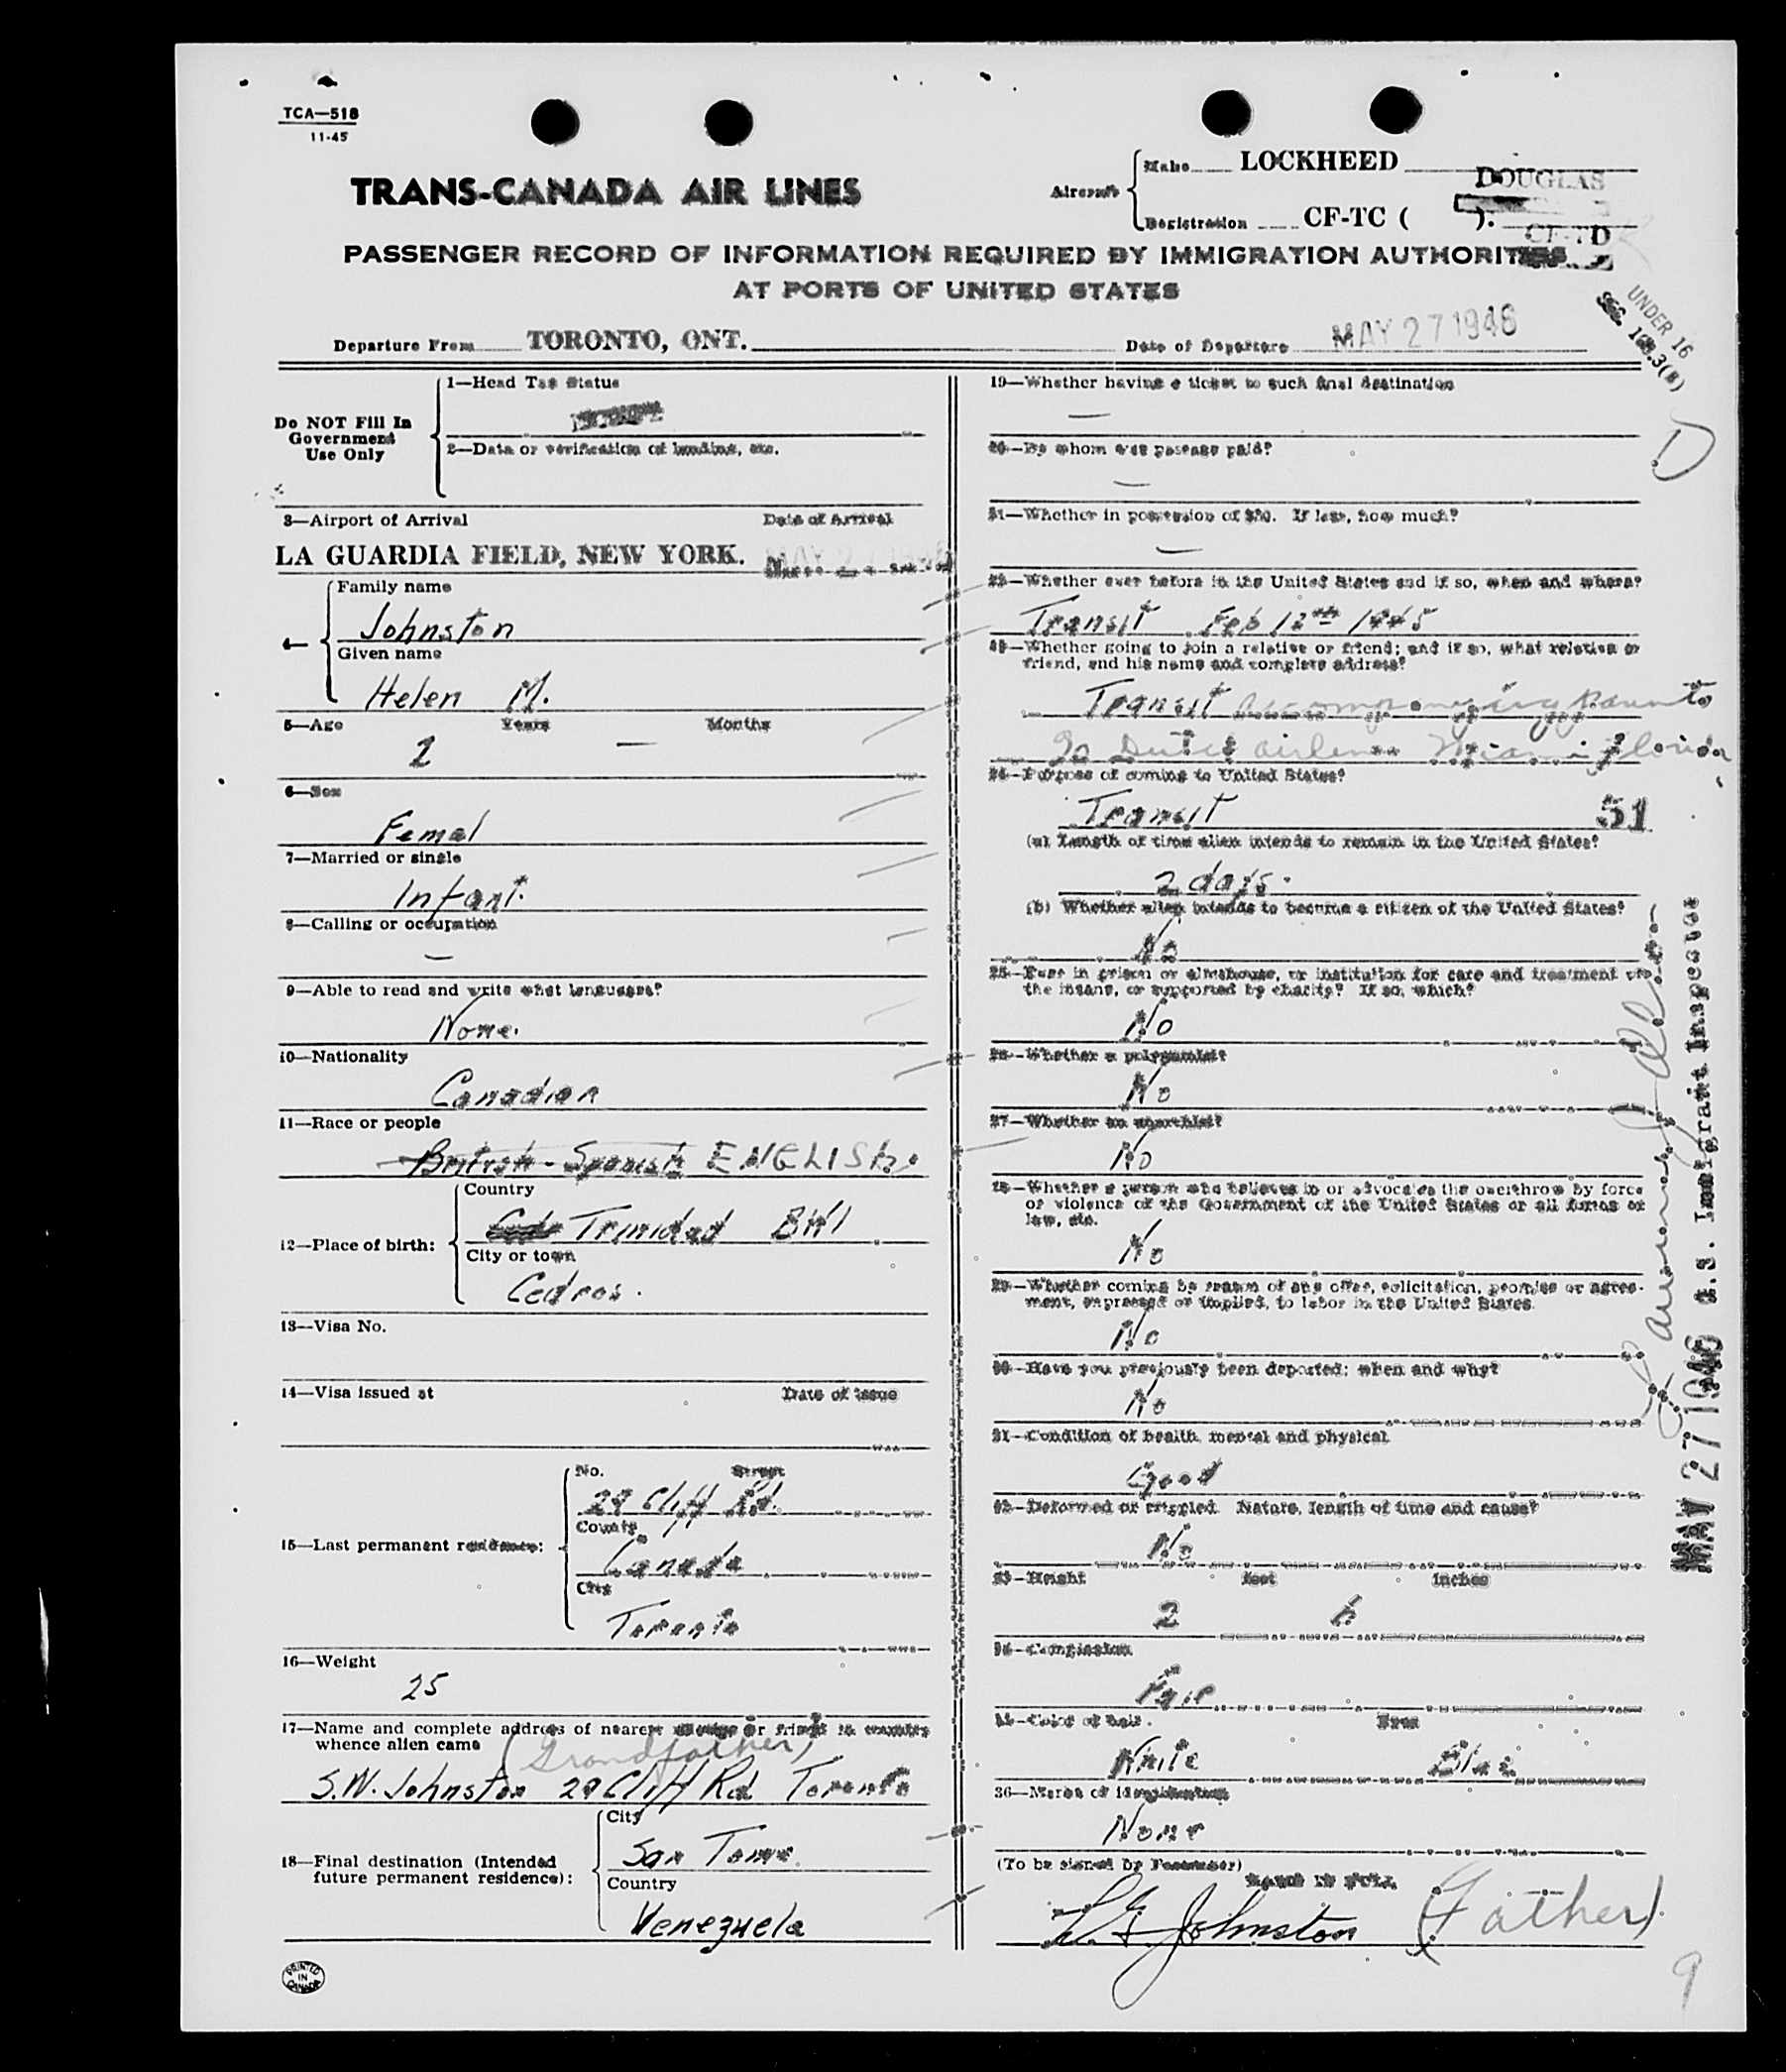 TCA—518
11-45
TRANS-CANADA AIR LINES
Aircraft
Make LOCKHEED
DOUGLAS
Registration CF-TC ( ).
CF-TD
PASSENGER RECORD OF INFORMATION REQUIRED BY IMMIGRATION AUTHORITIES
AT PORTS OF UNITED STATES
UNDER 16
Departure From TORONTO, ONT.
Date of Departure MAY 27 1946
Do NOT Fill In
Government
Use Only
1—Head Tax Status
2—Data or verification of landing, etc.
3—Airport of Arrival Date of Arrival
LA GUARDIA FIELD, NEW YORK.
4—
Family name
Johnston
Given name
Helen M.
5—Age Years Months
2 —
6—Sex
Femal
7—Married or single
Infant.
8—Calling or occupation
—
9—Able to read and write what languages?
None.
10—Nationality
Canadian
11—Race or people
British - Spanish ENGLISH.
12—Place of birth:
Country
Trinidad BWI
City or town
Cedros.
13—Visa No.
14—Visa issued at Date of issue
15—Last permanent residence:
No. Street
29 Cliff Rd.
County
Canada
City
Toronto
16—Weight
25
17—Name and complete address of nearest relative or friend in country
whence alien came
(Grandfather)
S.W. Johnston 29 Cliff Rd Toronto
18—Final destination (Intended
future permanent residence):
City
San Tome.
Country
Venezuela
PRINTED
IN
CANADA
19—Whether having a ticket to such final destination
—
20—By whom was passage paid?
—
21—Whether in possession of $50. If less, how much?
—
22—Whether ever before in the United States and if so, when and where?
Transit Feb 12th 1945
23—Whether going to join a relative or friend; and if so, what relative or
friend, and his name and complete address?
Transit accompanying parents
Miami Florida
24—Purpose of coming to United States?
Transit
51
(a) Length of time alien intends to remain in the United States?
2 days.
(b) Whether alien intends to become a citizen of the United States?
No
25—Ever in prison or almshouse, or institution for care and treatment of
the insane, or supported by charity? If so, which?
No
26—Whether a polygamist?
No
27—Whether an anarchist?
No
28—Whether a person who believes in or advocates the overthrow by force
or violence of the Government of the United States or all forms of
law, etc.
No
29—Whether coming by reason of any offer, solicitation, promise or agree-
ment, expressed or implied, to labor in the United States
No
30—Have you previously been deported; when and why?
No
31—Condition of health, mental and physical
Good
32—Deformed or crippled. Nature, length of time and cause?
No
33—Height feet inches
2 6
34—Complexion
Fair
35—Color of hair. Eyes
White Blue
36—Marks of identification
None
(To be signed by Passenger)
NAME IN FULL
Johnston (Father).
9
MAY 27 1946 U.S. Immigrant Inspector